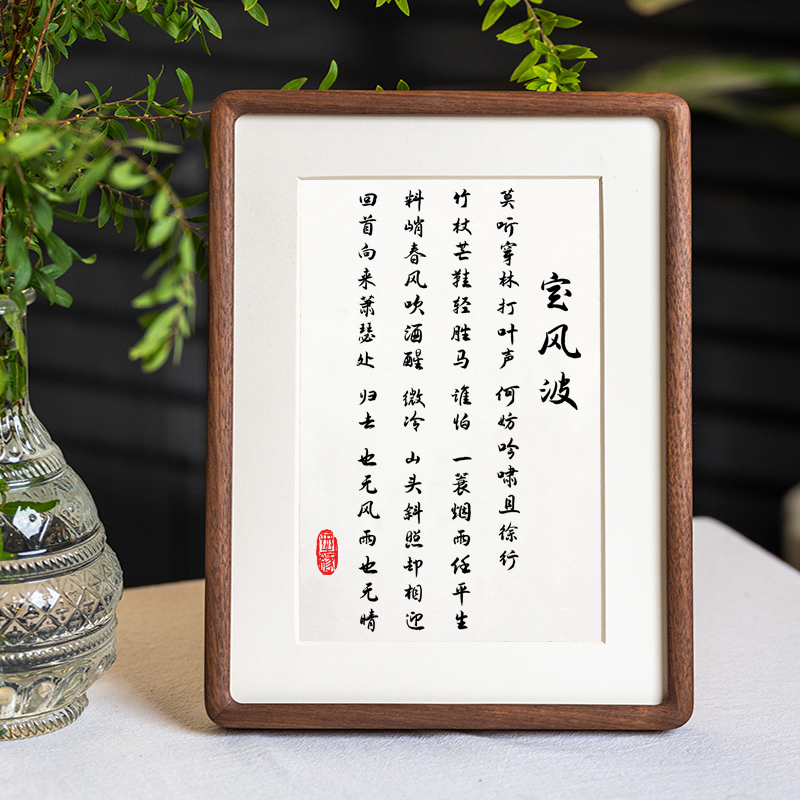 定风波
莫听穿林打叶声 何妨吟啸且徐行
竹杖芒鞋轻胜马 谁怕 一蓑烟雨任平生
料峭春风吹酒醒 微冷 山头斜照却相迎
回首向来萧瑟处 归去 也无风雨也无晴